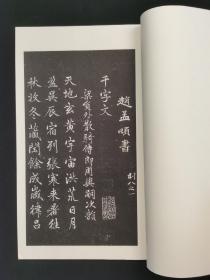 趙孟頫書
千字文
梁員外散騎侍郎周興嗣次韻
天地玄黃宇宙洪荒日月
盈昃辰宿列張寒來暑往
秋收冬藏閏餘成歲律呂